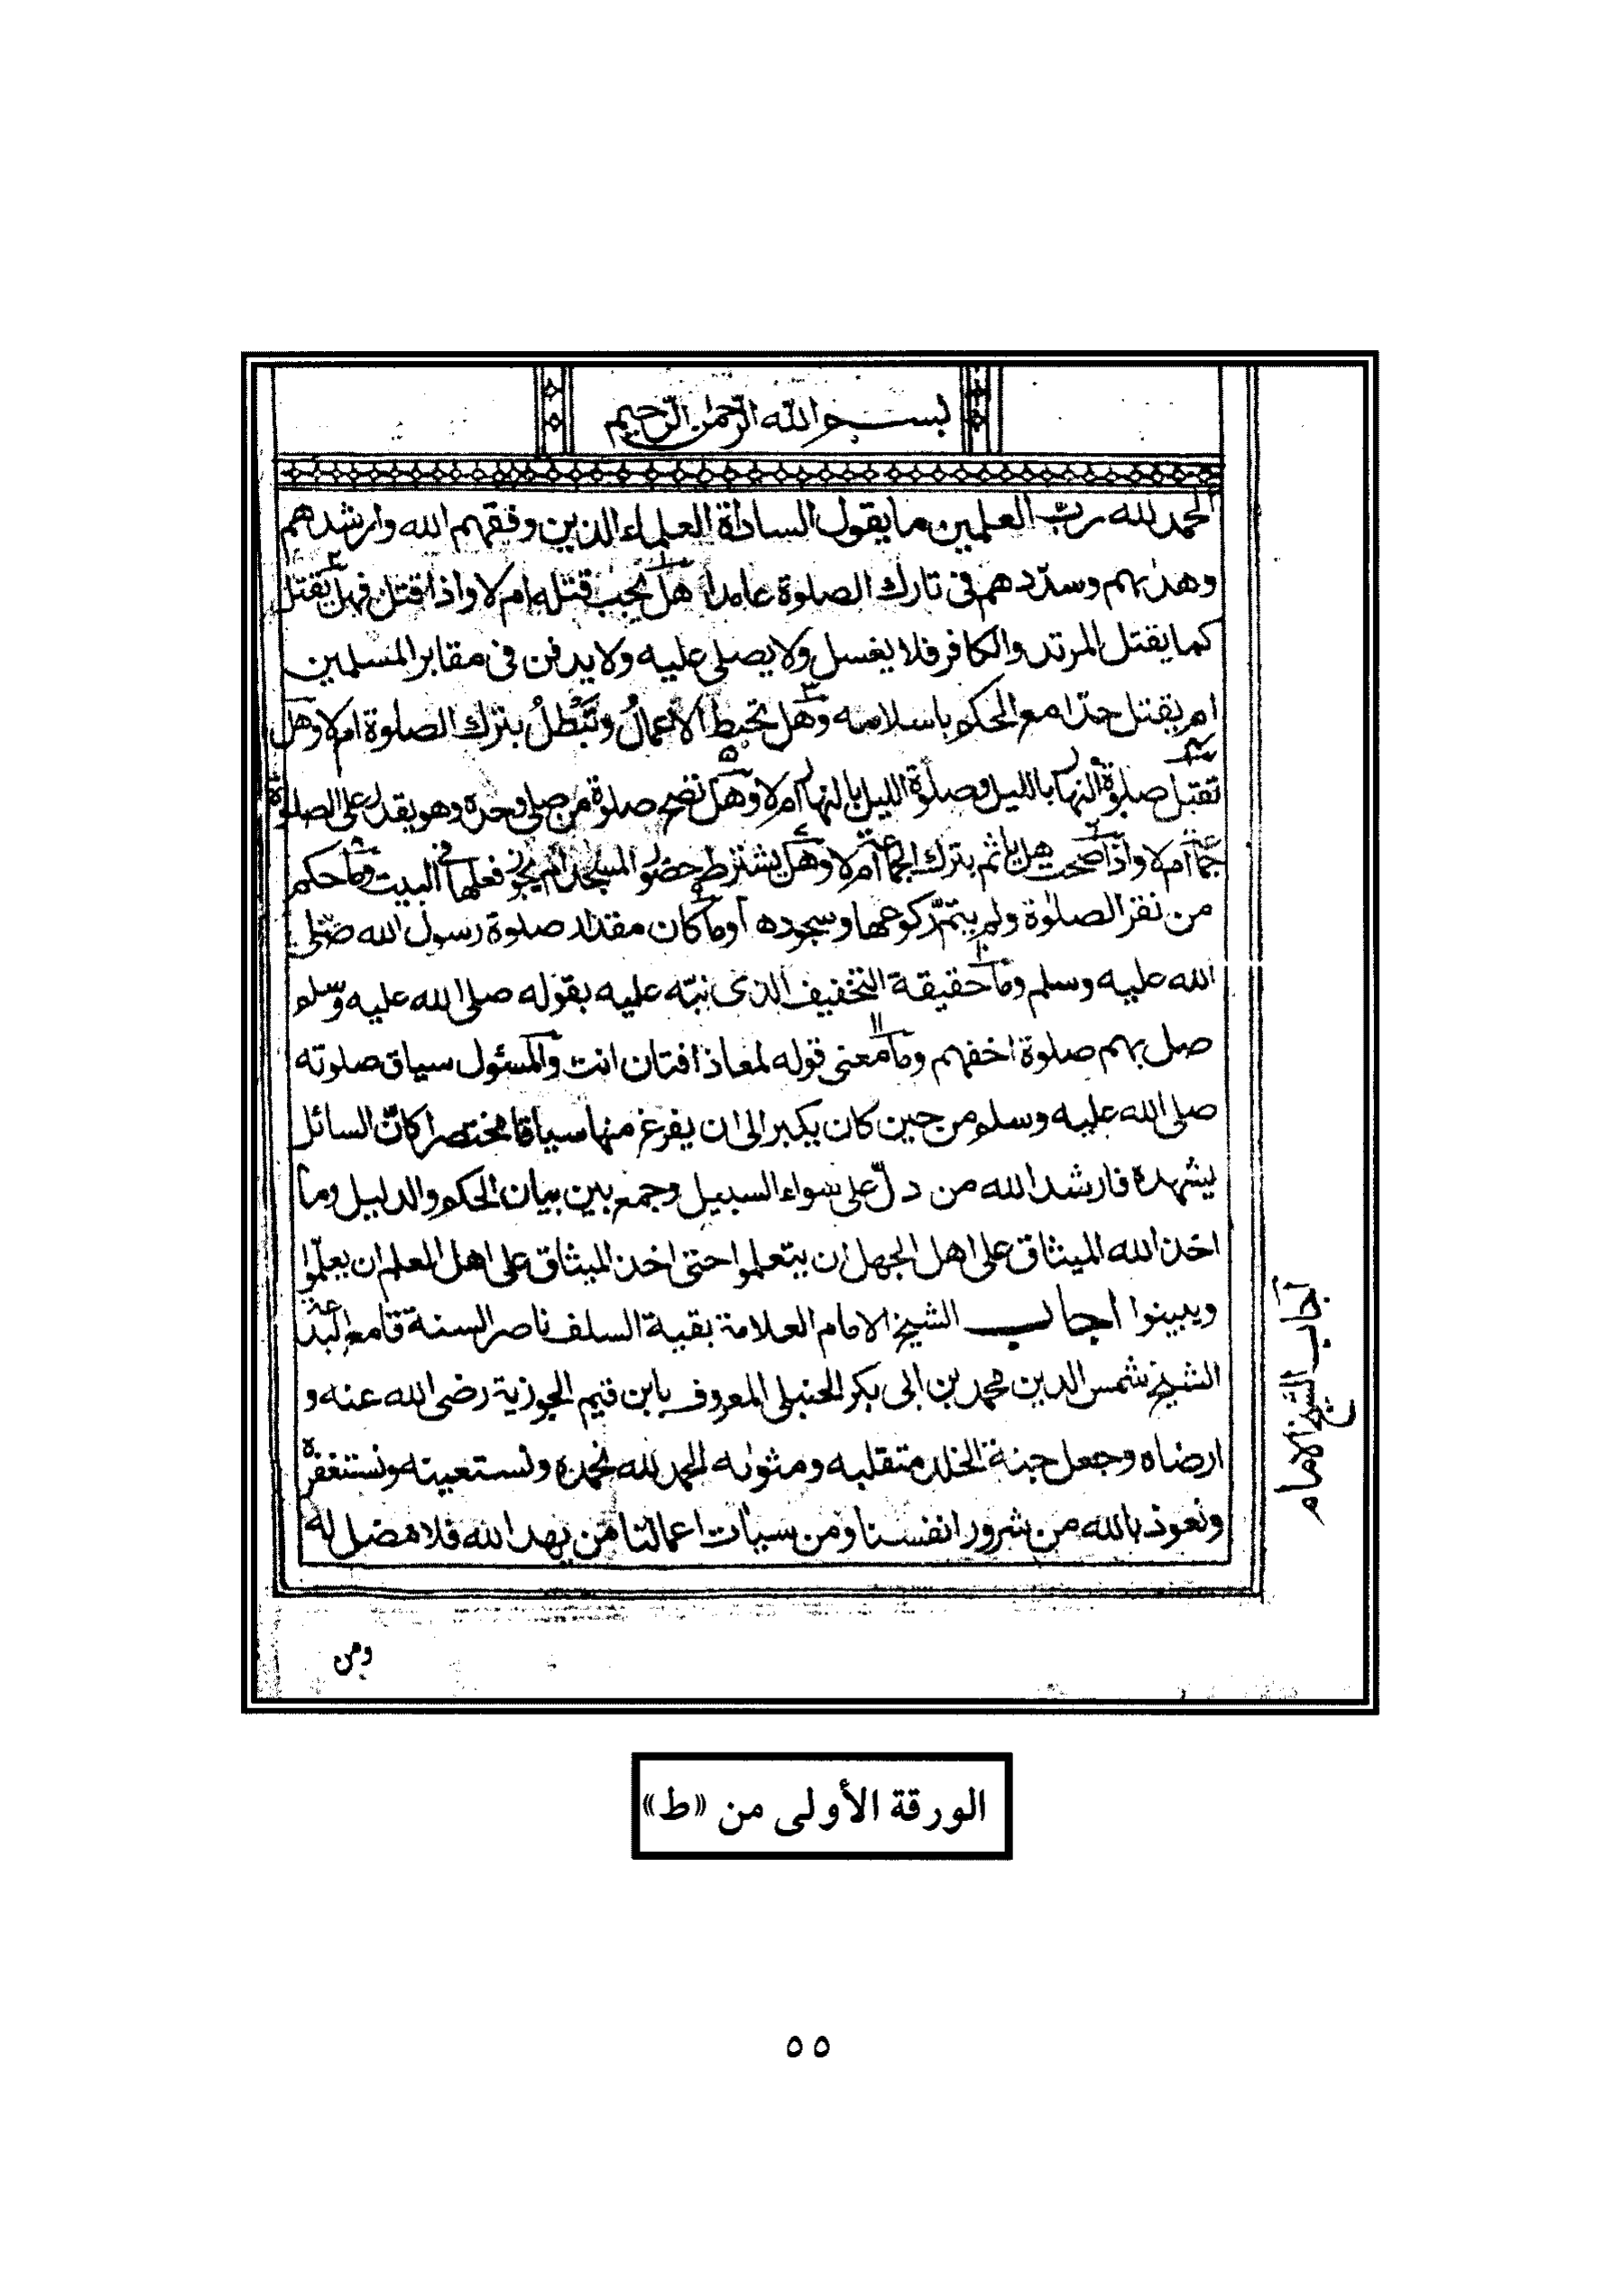 بسم الله الرحمن الرحيم
الحمد لله رب العلمين ما يقول السادة العلماء الذين وفقهم الله وارشدهم
وهذبهم وسددهم فى تارك الصلوة عامدا هل يجب قتله ام لا واذا قتل فهل يقتل
كما يقتل المرتد والكافر فلا يغسل ولا يصلى عليه ولا يدفن فى مقابر المسلمين
ام يقتل حدا مع الحكم باسلامه وهل تحبط الأعمالُ وتَبْطلُ بترك الصلوة ام لا وهل
تقبل صلوة النهار بالليل وصلوة الليل بالنهار ام لا وهل تصح صلوة من صلى وحده وهو يقدر على الصلوة
جماعة ام لا واذا صحت هل ياثم بترك الجماعة ام لا وهل يشترط حضور المسجد ام يجوز فعلها فى البيت وما حكم
من نقر الصلوة ولم يتم ركوعها وسجودها وما كان مقدار صلوة رسول الله صلى
الله عليه وسلم وما حقيقة التخفيف الذى نبّه عليه بقوله صلى الله عليه وسلم
صل بهم صلوة اخفهم وما معنى قوله لمعاذ افتان انت والمسئول سياق صلوته
صلى الله عليه وسلم من حين كان يكبر الى ان يفرغ منها سياقا مختصرا كانّ السائل
يشهده فارشد الله من دلّ على سواء السبيل وجمع بين بيان الحكم والدليل وما
اخذ الله الميثاق على اهل الجهل ان يتعلموا حتى اخذ الميثاق على اهل العلم ان يعلّموا
ويبينوا اجاب الشيخ الامام العلامة بقية السلف ناصر السنة قامع البدعة
الشيخ شمس الدين محمد بن ابى بكر الحنبلى المعروف بابن قيم الجوزية رضى الله عنه و
ارضاه وجعل جنة الخلد متقلبه ومثوىه الحمد لله نحمده ونستعينه ونستغفره
ونعوذ بالله من شرور انفسنا ومن سيات اعمالنا من يهد الله فلا مضل له
ومن
اجاب الشيخ الامام
الورقة الأولى من «ط»
٥٥